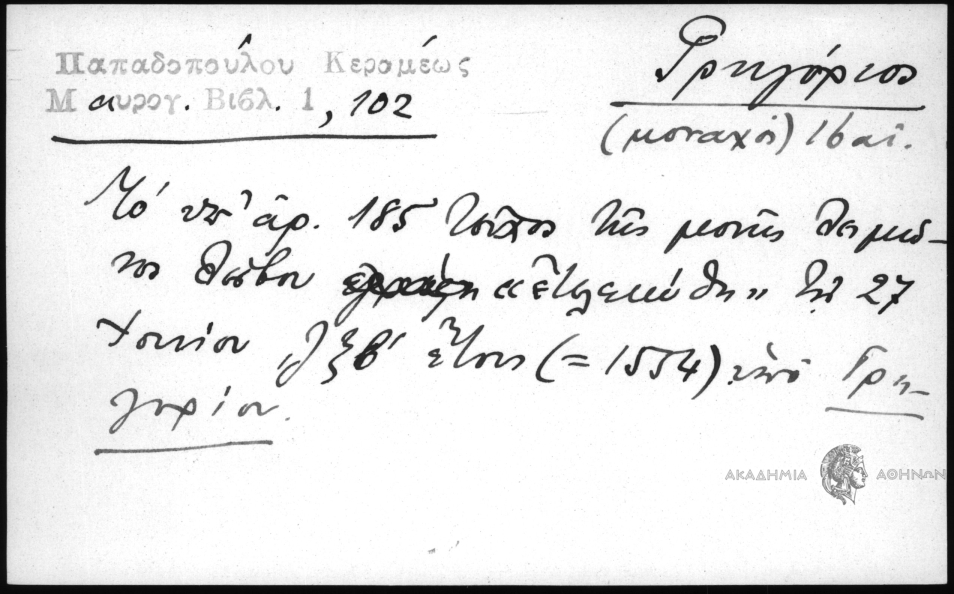 Παπαδοπούλου Κεραμέως
Μαυρογ. Βιβλ. 1, 102
Γρηγόριος
(μοναχός) 16 αἰ.
Τό ὑπ' ἀρ. 185 τεῦχος τῆς μονῆς Λειμῶ-
νος Λέσβου «ἐτελειώθη» τῇ 27
Ἰουνίου ζξβ' ἔτους (= 1554) ὑπό Γρη-
γορίου.
ΑΚΑΔΗΜΙΑ ΑΘΗΝΩΝ